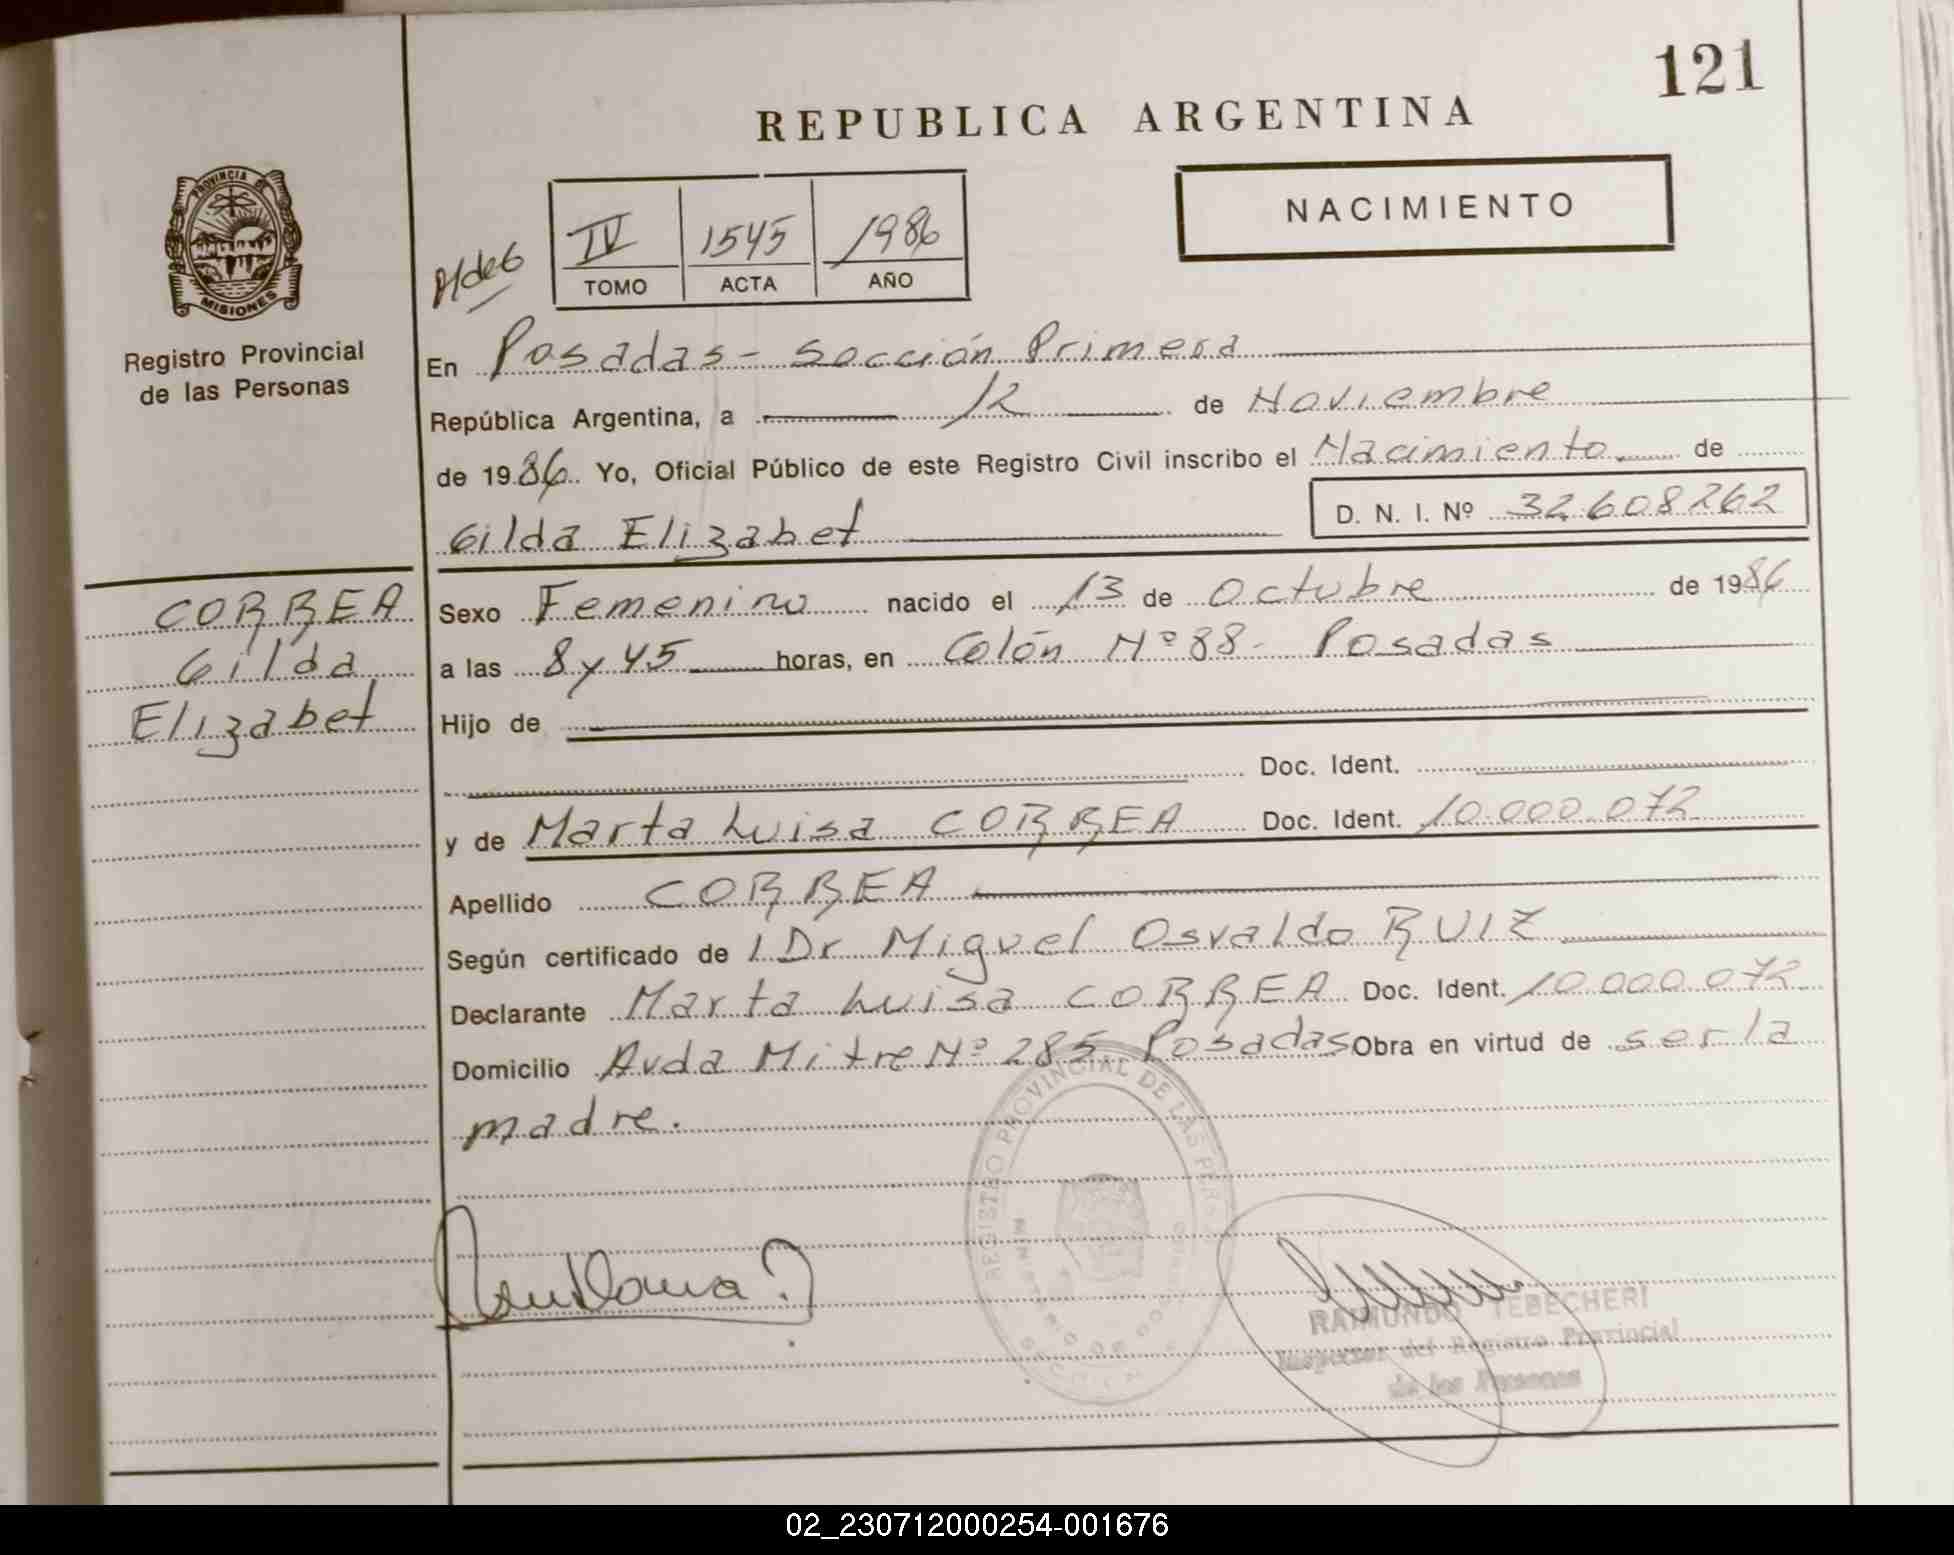 121
REPUBLICA ARGENTINA
NACIMIENTO
PROVINCIA DE
MISIONES
Registro Provincial
de las Personas
IV 1545 1986
TOMO ACTA AÑO
En Posadas - Sección Primera
República Argentina, a 12 de Noviembre
de 1986. Yo, Oficial Público de este Registro Civil inscribo el Nacimiento de
Gilda Elizabet D. N. I. Nº 32.608262
CORREA
Gilda
Elizabet
Sexo Femenino nacido el 13 de Octubre de 1986
a las 8 y 45 horas, en Colón Nº 88 - Posadas
Hijo de
Doc. Ident.
y de Marta Luisa CORREA Doc. Ident. 10.000.072
Apellido CORREA
Según certificado de l Dr Miguel Osvaldo RUIZ
Declarante Marta Luisa CORREA Doc. Ident. 10.000.072
Domicilio Avda Mitre Nº 285 Posadas Obra en virtud de ser la
madre.
REGISTRO PROVINCIAL DE LAS PERS
RAIMUNDO TEBECHERI
Inspector del Registro Provincial
de las Personas
02_230712000254-001676